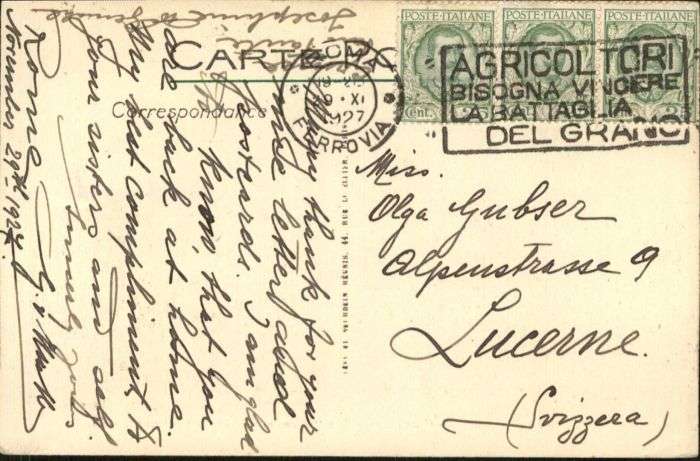 CARTE
Correspondance
POSTE·ITALIANE
POSTE·ITALIANE
POSTE·ITALIANE
Cent. 25
ROMA
9·XI
1927
FERROVIA
AGRICOLTORI
BISOGNA VINCERE
LA BATTAGLIA
DEL GRANO
Miss.
Olga Gubser
Alpenstrasse 9
Lucerne.
(Svizzera)
Many thank for your
nice letter and
postcards. I am glad
to know, that you
are back at home.
My best compliment to
your sisters and self
yours
Rome,
November 29th 1927.
Josephine